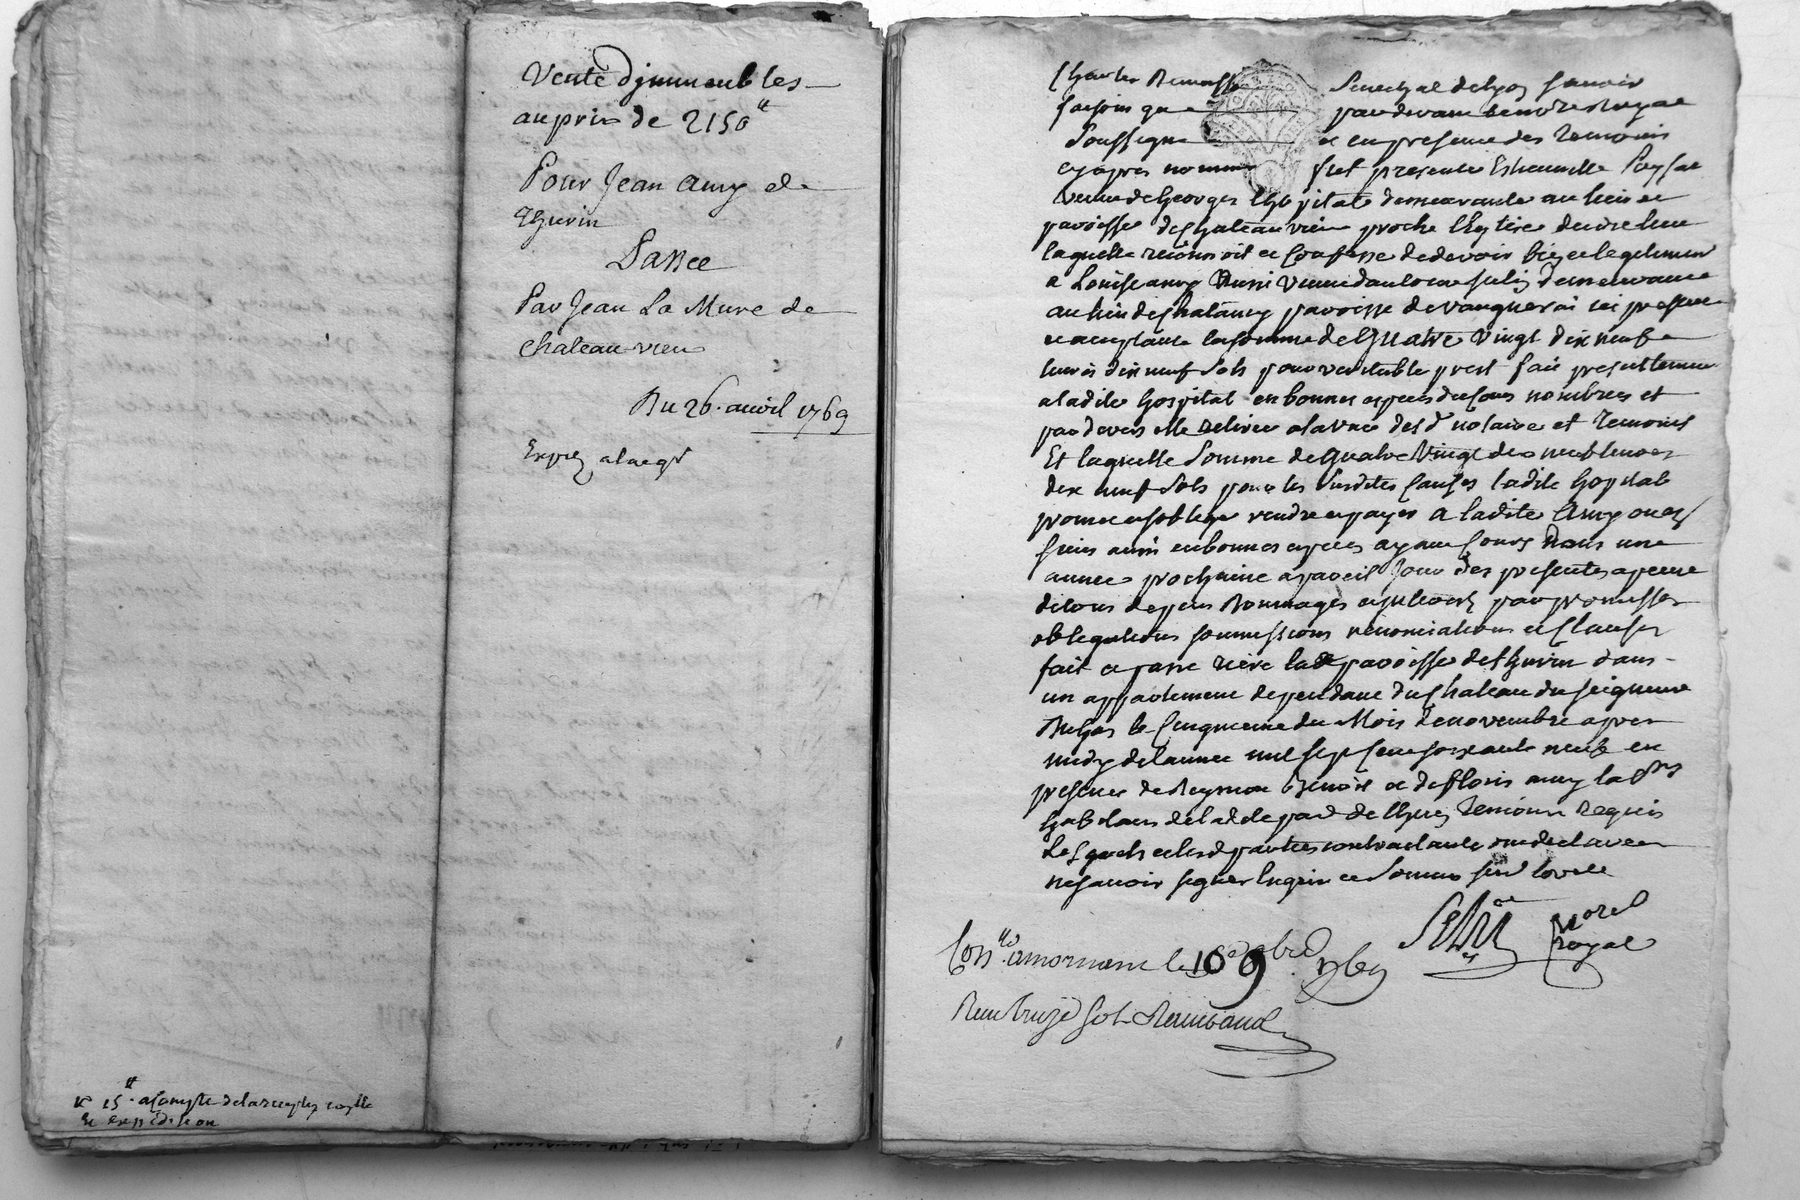 Vente d'immeubles
au prix de 2150 ₶
Pour Jean Amy de
Thurin
Passée
Par Jean La Mure de
Chateau-vieu
Du 26. avril 1769
15 ₶ a compte de la
et expédition
Senechal de Lyon sauoir
faisons que pardevant le no.re Royal
Soussigné et en presence des temoins
cy apres nommés fut presente
veuve de George hospital demeurante au lieu et
paroisse de Chateauvieu proche l'Eglise dudit lieu
laquelle reconnoit et Confesse de devoir bien et legitimement
a Louise amy aussi veuve d'antoine demeurante
au lieu de paroisse de vaugneraÿ ici presente
et acceptante la somme de Quatre vingt dix neuf
livres dix neuf sols pour veritable prest fait presentement
a ladite hospital en bonnes especes du Cours nombrées et
par devers elle retirée a la vue des d. notaire et temoins
Et laquelle Somme de Quatre Vingt dix neuf livres
dix neuf Sols pour les Susdites Causes ladite hopital
promet et s'oblige rendre et payer a ladite Amy ou es
siens aussi en bonnes especes ayant Cours dans une
année prochaine a pareil Jour des presentes a peine
de tous depens Dommages et interets par promesses
obligations soumissions renonciations et Clauses
fait et passé rière lad. paroisse de thurin dans
un appartement dependant du Chateau du seigneur
le Cinquieme du Mois de novembre apres
midy de l'annee mil sept cent soixante neuf en
presence de Benoit et de amy
habitans de lad. par. de temoins Requis
Lesquels et les d. parties contractantes ont declaré
ne sauoir signer Enquis et Sommés
Morel
royal
Con.llé a mornant le 10 9bre 1769
Reçu treize sols